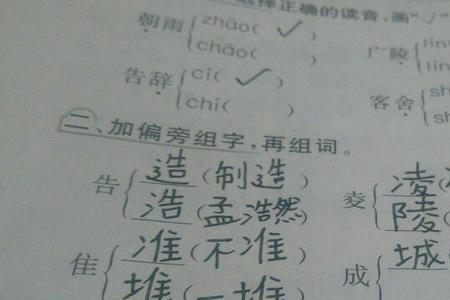 选择正确的读音,画“√”
朝雨 zhāo( √ )
cháo( )
广陵 lín
lín
告辞 cí( √ )
chí( )
客舍 sh
sh
二、加偏旁组字,再组词。
告 造(制造)
浩(孟浩然)
夌 凌(
陵(
隹 准(不准)
堆(一堆
成 城(